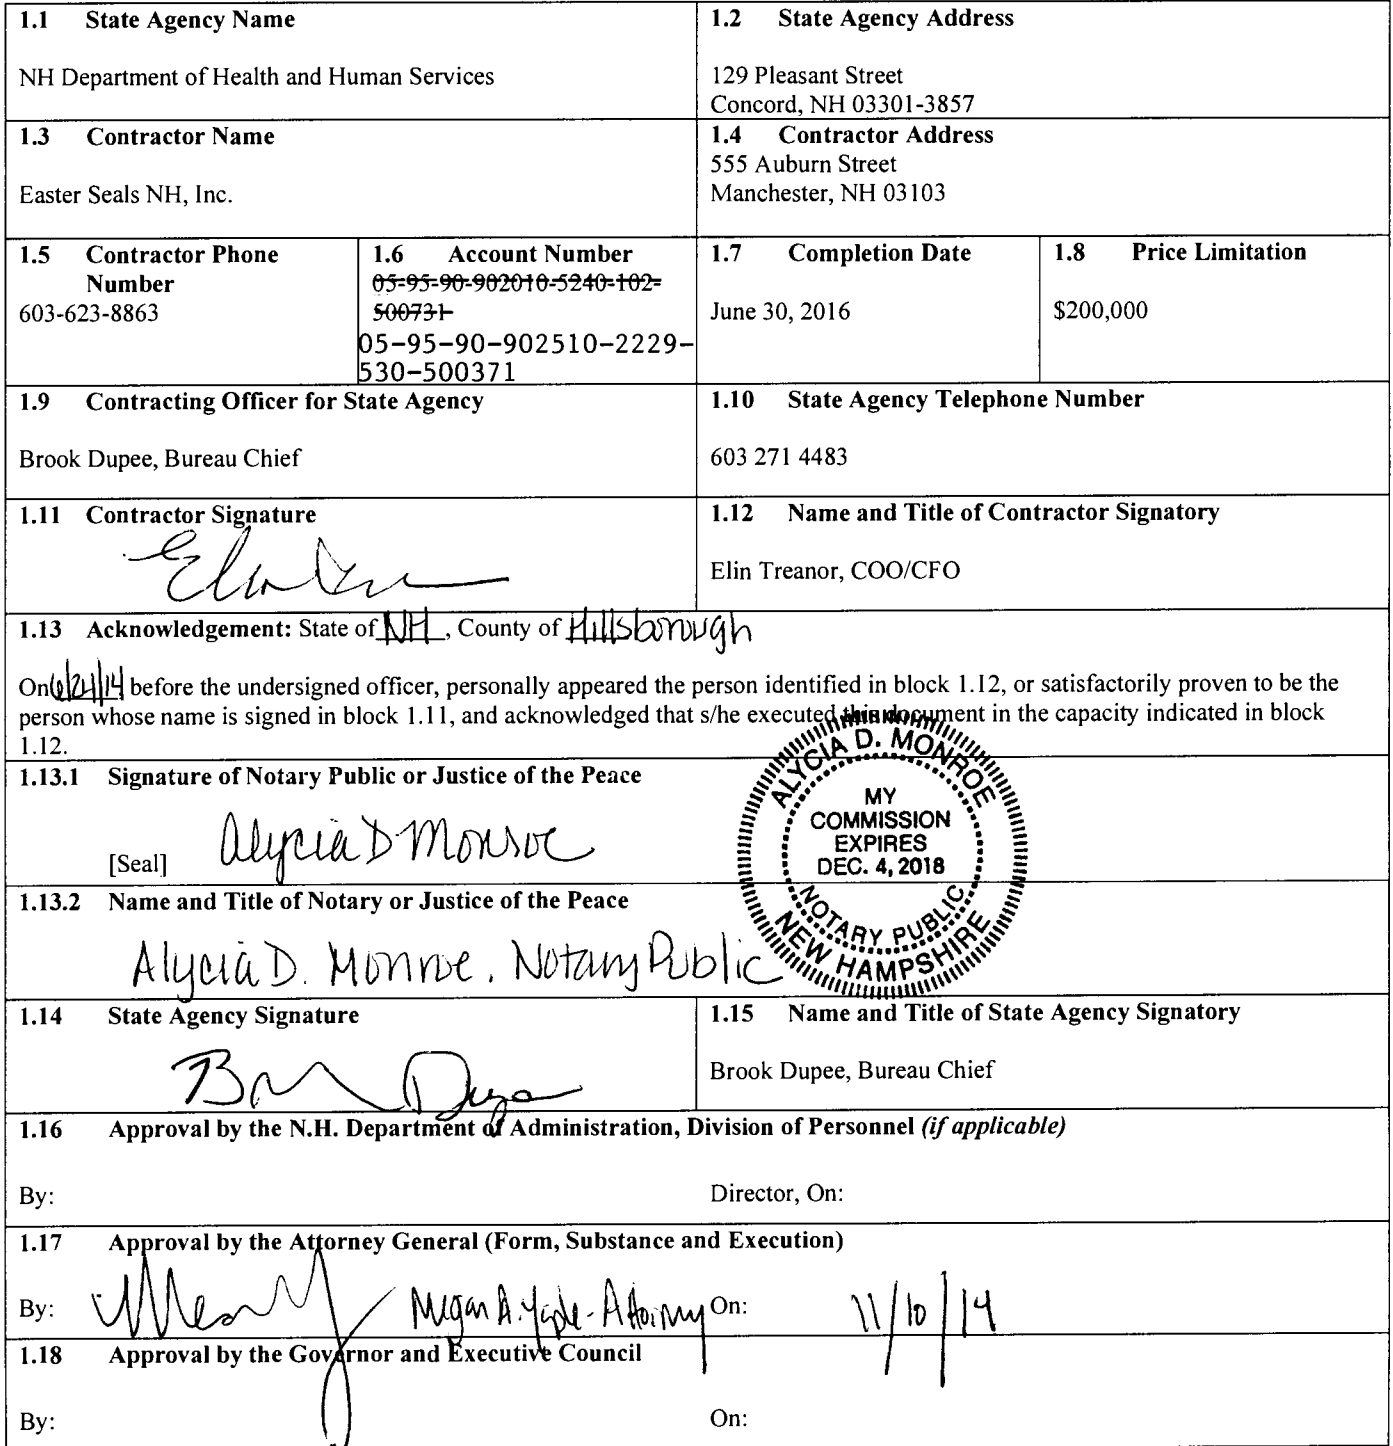 1.1 State Agency Name
NH Department of Health and Human Services
1.2 State Agency Address
129 Pleasant Street
Concord, NH 03301-3857
1.3 Contractor Name
Easter Seals NH, Inc.
1.4 Contractor Address
555 Auburn Street
Manchester, NH 03103
1.5 Contractor Phone
Number
603-623-8863
1.6 Account Number
05-95-90-902010-5240-102-
500731
05-95-90-902510-2229-
530-500371
1.7 Completion Date
June 30, 2016
1.8 Price Limitation
$200,000
1.9 Contracting Officer for State Agency
Brook Dupee, Bureau Chief
1.10 State Agency Telephone Number
603 271 4483
1.11 Contractor Signature
1.12 Name and Title of Contractor Signatory
Elin Treanor, COO/CFO
1.13 Acknowledgement: State of NH, County of Hillsborough
On before the undersigned officer, personally appeared the person identified in block 1.12, or satisfactorily proven to be the
person whose name is signed in block 1.11, and acknowledged that s/he executed this document in the capacity indicated in block
1.12.
1.13.1 Signature of Notary Public or Justice of the Peace
[Seal] Alycia D Monroe
ALYCIA D. MONROE
MY
COMMISSION
EXPIRES
DEC. 4, 2018
NOTARY PUBLIC
NEW HAMPSHIRE
1.13.2 Name and Title of Notary or Justice of the Peace
Alycia D. Monroe, Notary Public
1.14 State Agency Signature
1.15 Name and Title of State Agency Signatory
Brook Dupee, Bureau Chief
1.16 Approval by the N.H. Department of Administration, Division of Personnel (if applicable)
By: Director, On:
1.17 Approval by the Attorney General (Form, Substance and Execution)
By: Megan A. Yaple - Attorney On: 11/10/14
1.18 Approval by the Governor and Executive Council
By: On: